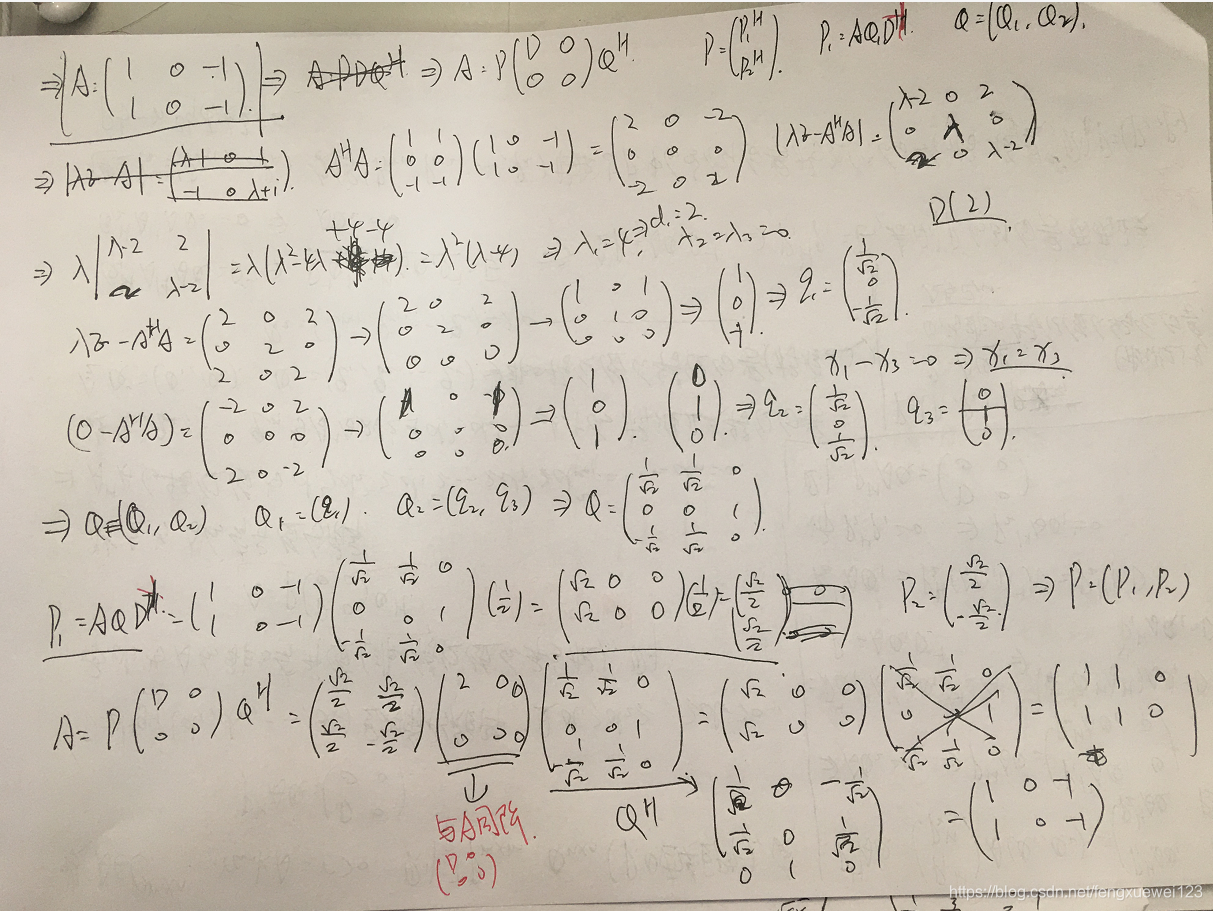 ⇒ A = (1 0 -1; 1 0 -1) ⇒ A=PDQ^H ⇒ A = P(D 0; 0 0)Q^H. P = (P₁^H; P₂^H). P₁ = AQ₁D^H. Q = (Q₁, Q₂).
⇒ |λI-A| = (λ-1 0 1; -1 0 λ+1). A^H A = (1 1; 0 0; -1 -1)(1 0 -1; 1 0 -1) = (2 0 -2; 0 0 0; -2 0 2) |λI-A^H A| = (λ-2 0 2; 0 λ 0; 2 0 λ-2)
D(2)
⇒ λ|λ-2 2; 2 λ-2| = λ(λ²-4λ+4-4) = λ²(λ-4) ⇒ λ₁=4, ⇒ d₁=2. λ₂=λ₃=0.
λI-A^H A = (2 0 2; 0 2 0; 2 0 2) → (2 0 2; 0 2 0; 0 0 0) → (1 0 1; 0 1 0; 0 0 0) ⇒ (1; 0; -1). ⇒ q₁ = (1/√2; 0; -1/√2).
x₁-x₃=0 ⇒ x₁=x₃
(0-A^H A) = (-2 0 2; 0 0 0; 2 0 -2) → (1 0 -1; 0 0 0; 0 0 0) ⇒ (1; 0; 1). (0; 1; 0) ⇒ q₂ = (1/√2; 0; 1/√2). q₃ = (0; 1; 0).
⇒ Q=(Q₁, Q₂) Q₁=(q₁). Q₂=(q₂, q₃) ⇒ Q = (1/√2 1/√2 0; 0 0 1; -1/√2 1/√2 0).
P₁ = AQD^H = (1 0 -1; 1 0 -1)(1/√2 1/√2 0; 0 0 1; -1/√2 1/√2 0)(1/2) = (√2 0 0; √2 0 0)(1/2) = (√2/2; √2/2) P₂ = (√2/2; -√2/2) ⇒ P=(P₁, P₂)
A = P(D 0; 0 0)Q^H = (√2/2 √2/2; √2/2 -√2/2)(2 0 0; 0 0 0)(1/√2 1/√2 0; 0 0 1; -1/√2 1/√2 0) = (√2 0 0; √2 0 0)(1/√2 1/√2 0; 0 1; -1/√2 1/√2 0) = (1 1 0; 1 1 0)
与A同阶.
(D 0; 0 0)
Q^H (1/√2 0 -1/√2; 1/√2 0 1/√2; 0 1 0) = (1 0 -1; 1 0 -1)
https://blog.csdn.net/fengxuewei123